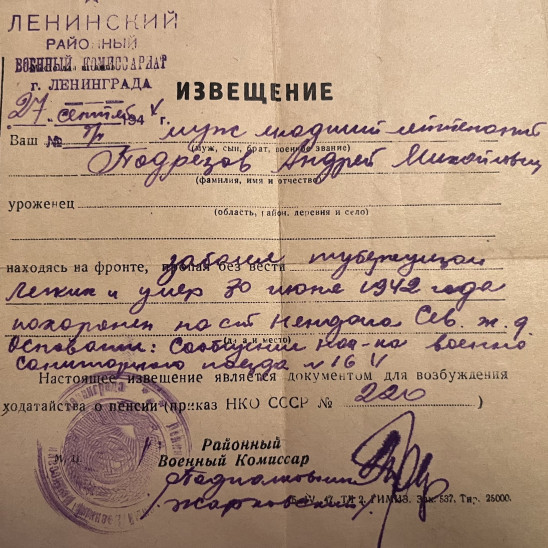 ЛЕНИНСКИЙ
РАЙОННЫЙ
ВОЕННЫЙ КОМИССАРИАТ
г. ЛЕНИНГРАДА
ИЗВЕЩЕНИЕ
27 сентяб 194 г.
№ б/н
Ваш муж младший лейтенант
(муж, сын, брат, военное звание)
Подрезов Андрей Михайлович
(фамилия, имя и отчество)
уроженец
(область, район, деревня и село)
находясь на фронте, пропал без вести заболел туберкулезом
легких и умер 30 июня 1942 года
похоронен на ст. Сев. ж. д.
(дата и место)
Основание: Сообщение нач-ка военно
санитарного поезда № 16
Настоящее извещение является документом для возбуждения
ходатайства о пенсии (приказ НКО СССР № 220 )
м. п.
Районный
Военный Комиссар
Подполковник
/Жарковский/
2, ГИМИЗ. Зак. 537, Тир. 25000.